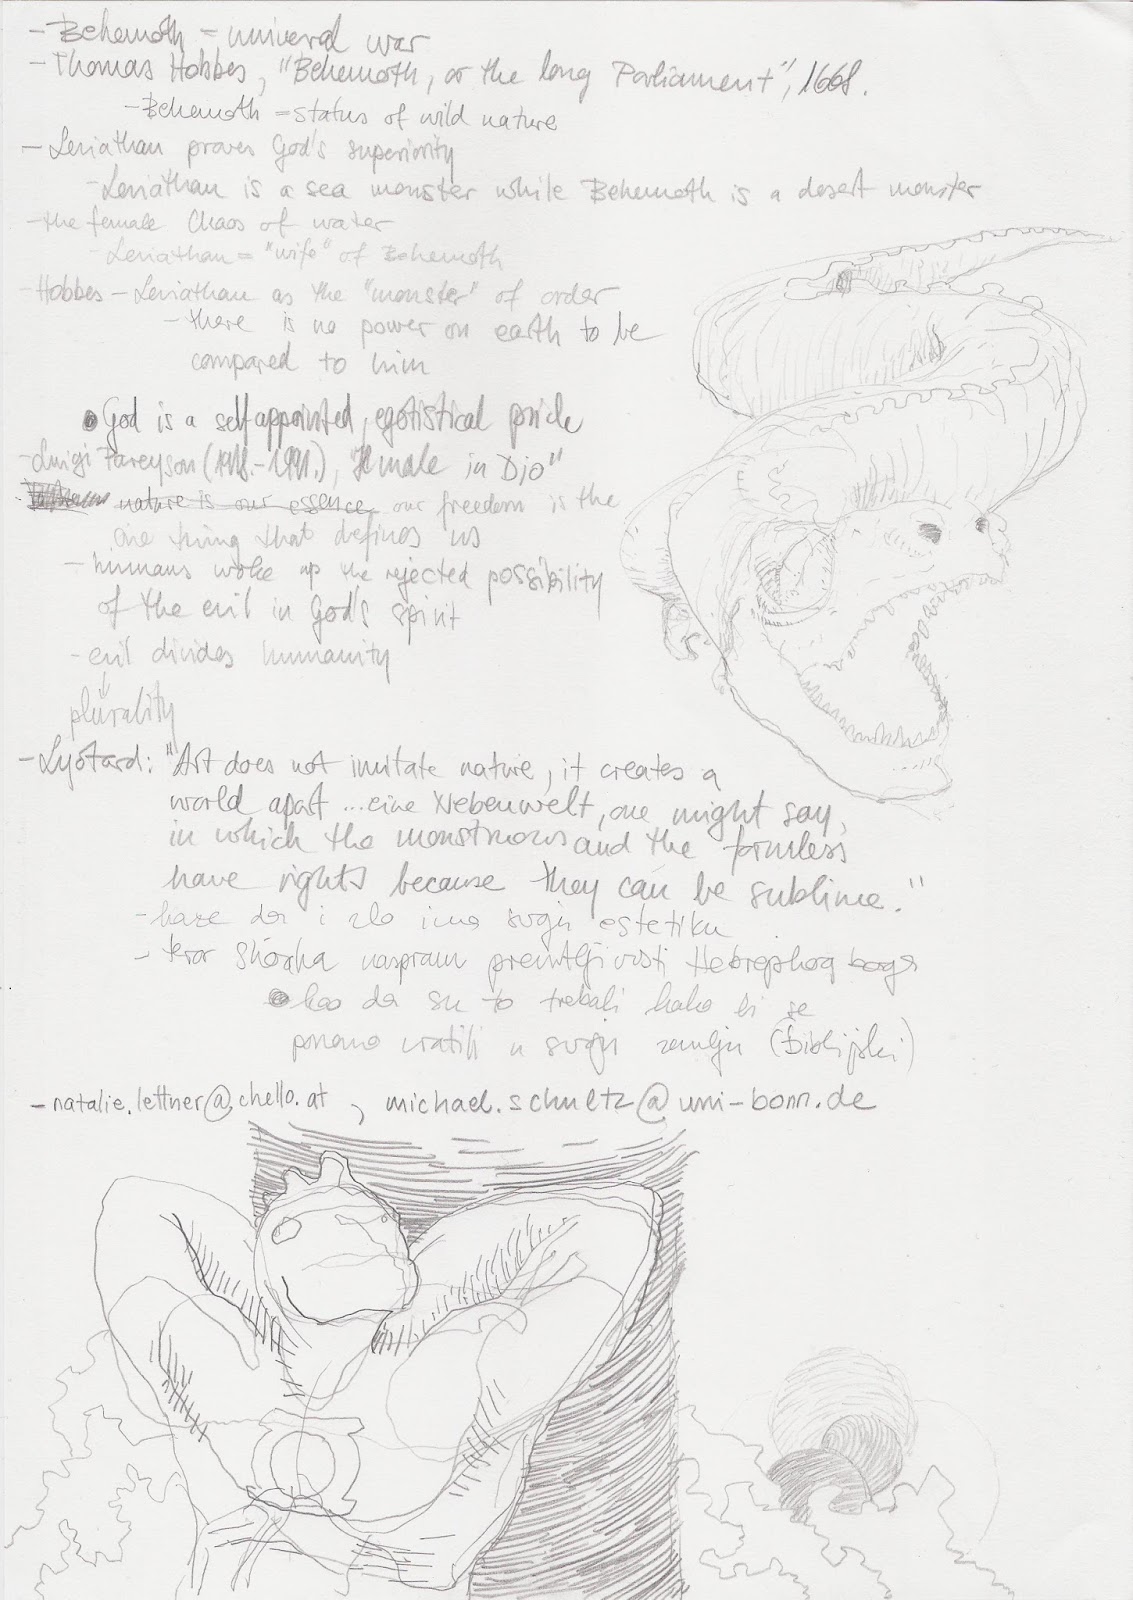 - Behemoth = univeral war
- Thomas Hobbes, "Behemoth, or the long Parliament", 1668.
- Behemoth = status of wild nature
- Leviathan proves God's superiority
- Leviathan is a sea monster while Behemoth is a desert monster
- the female Chaos of water
- Leviathan = "wife" of Behemoth
- Hobbes - Leviathan as the "monster" of order
- there is no power on earth to be
compared to him
• God is a selfappointed, egotistical pride
- Luigi Pareyson (1918.-1991.), "Il male in Dio"
nature is our essence our freedom is the
one thing that defines us
- humans woke up the rejected possibility
of the evil in God's spirit
- evil divides humanity
↓
plurality
- Lyotard: "Art does not imitate nature, it creates a
world apart ... eine Nebenwelt, one might say,
in which the monstruous and the formless
have rights because they can be sublime."
- kaže da i zlo ima svoju estetiku
- teror naspram prevrtljivosti boga
• kao da su to trebali kako bi se
ponovo vratili u svoju zemlju (Biblijski)
- natalie.lettner@chello.at , michael.schultz@uni-bonn.de